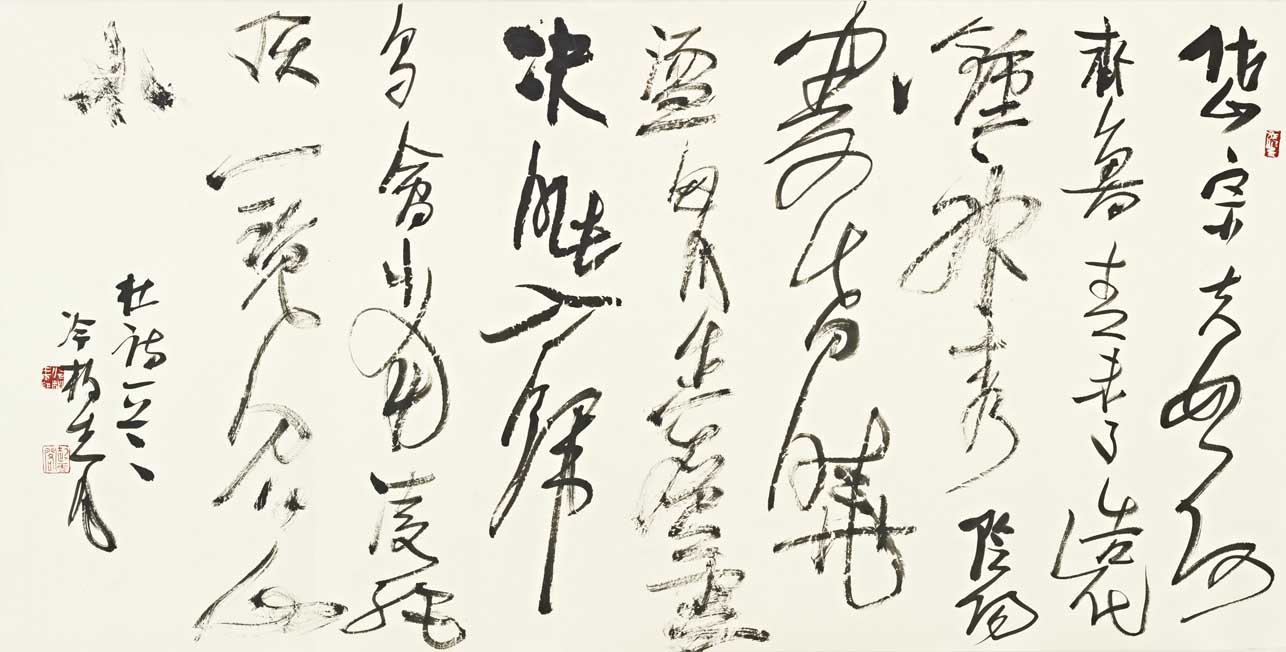 岱宗夫如何
齊魯青未了造化
鍾神秀陰陽
割昏曉
盪胸生層雲
決眥入歸
鳥會當凌絕
頂一覽眾山
小
杜詩一首